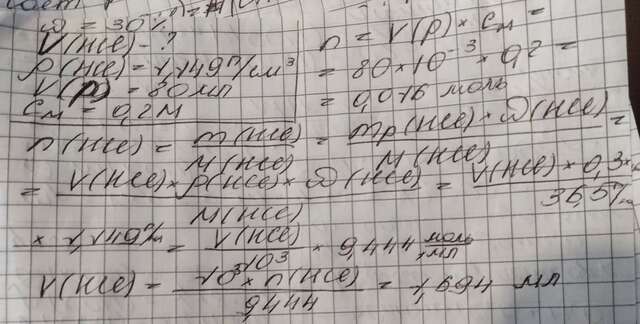 ω = 30%
V(HCl) - ?
ρ(HCl) = 1,149 г/см³
V(р) = 80 мл
См = 0,2 М
n = V(р) × См =
= 80 × 10⁻³ × 0,2 =
= 0,016 моль
n(HCl) = m(HCl) / M(HCl) = mр(HCl) × ω(HCl) / M(HCl) =
= V(HCl) × ρ(HCl) × ω(HCl) / M(HCl) = V(HCl) × 0,3 × / 36,5 г/
× 1,149 г/ = V(HCl) / 10³ × 9,444 моль/мл
V(HCl) = 10³ × n(HCl) / 9,444 = 1,694 мл